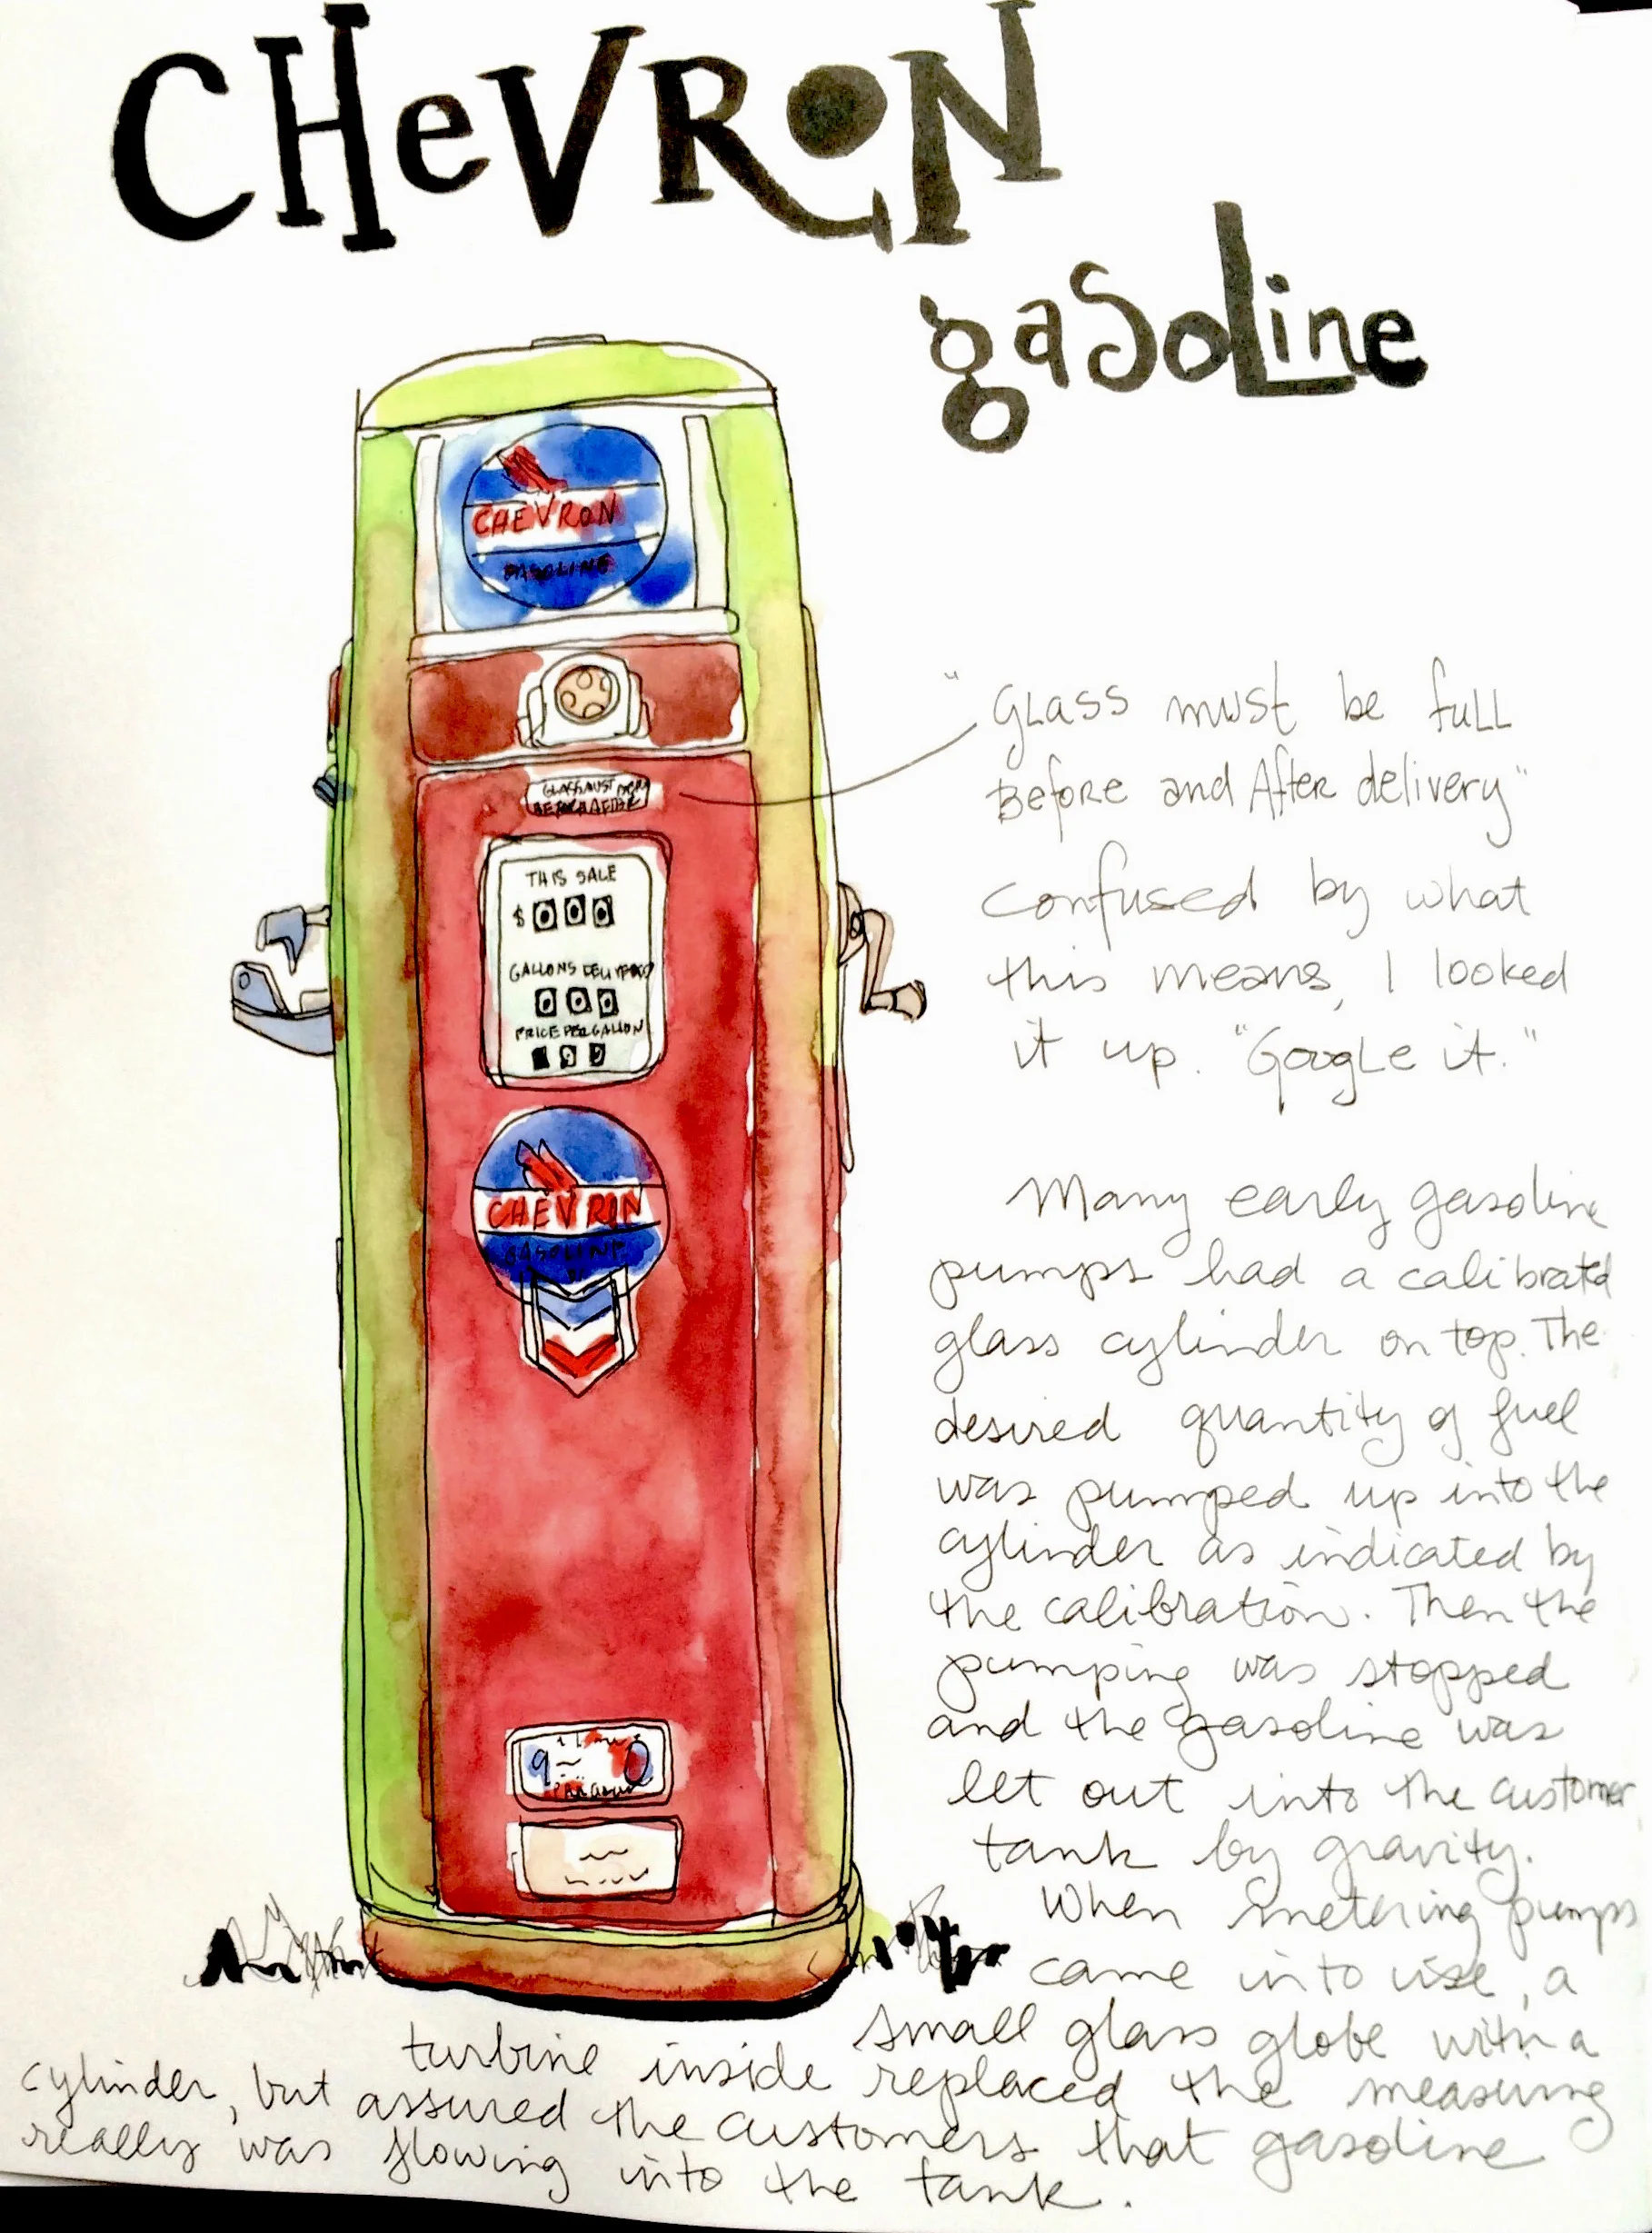 CHeVRON
gasoLine
CHEVRON
GASOLINE
GLASS MUST
BEFORE AFTER
THIS SALE
$ 0 0 0
GALLONS DELIVERED
0 0 0
PRICE PER GALLON
CHEVRON
GASOLINE
"GLASS must be fuLL
Before and After delivery"
confused by what
this means, I looked
it up. "GoogLe it."
Many early gasoline
pumps had a calibrated
glass cylinder on top. The
desired quantity of fuel
was pumped up into the
cylinder as indicated by
the calibration. Then the
pumping was stopped
and the gasoline was
let out into the customer
tank by gravity.
When metering pumps
came into use, a
small glass globe with a
turbine inside replaced the measuring
cylinder, but assured the customers that gasoline
really was flowing into the tank.